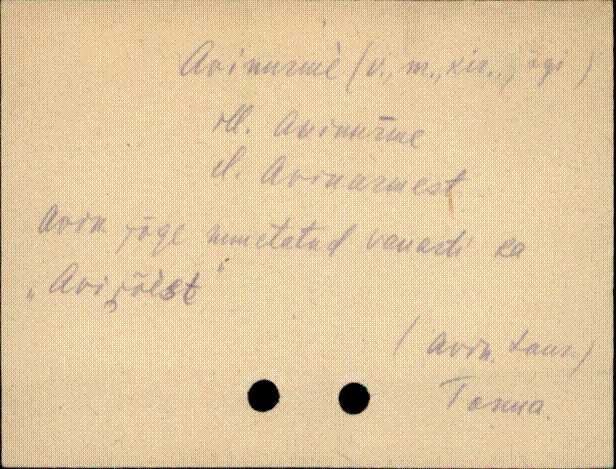 Avinurmè (v., m., kir., jõgi)
ill. Avinurme
el. Avinurmest
Avin. jõge nimetatud vanasti ka
„Avijõest"
(Avin. Laur.)